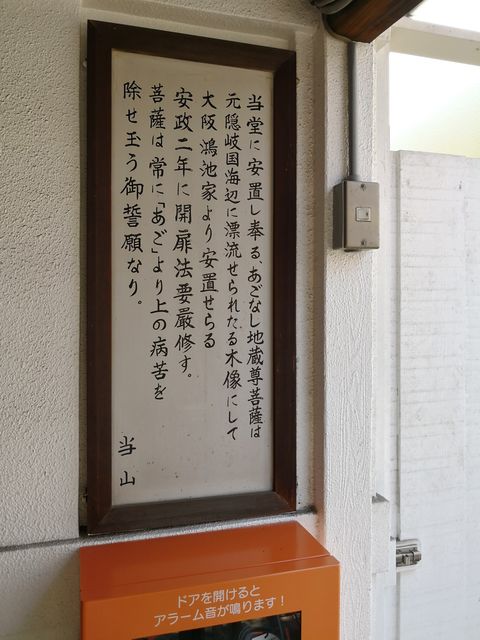 当堂に安置し奉る、あごなし地蔵尊菩薩は
元隠岐国海辺に漂流せられたる木像にして
大阪鴻池家より安置せらる
安政二年に開扉法要厳修す。
菩薩は常に「あご」より上の病苦を
除せ玉う御誓願なり。
当山
ドアを開けると
アラーム音が鳴ります！